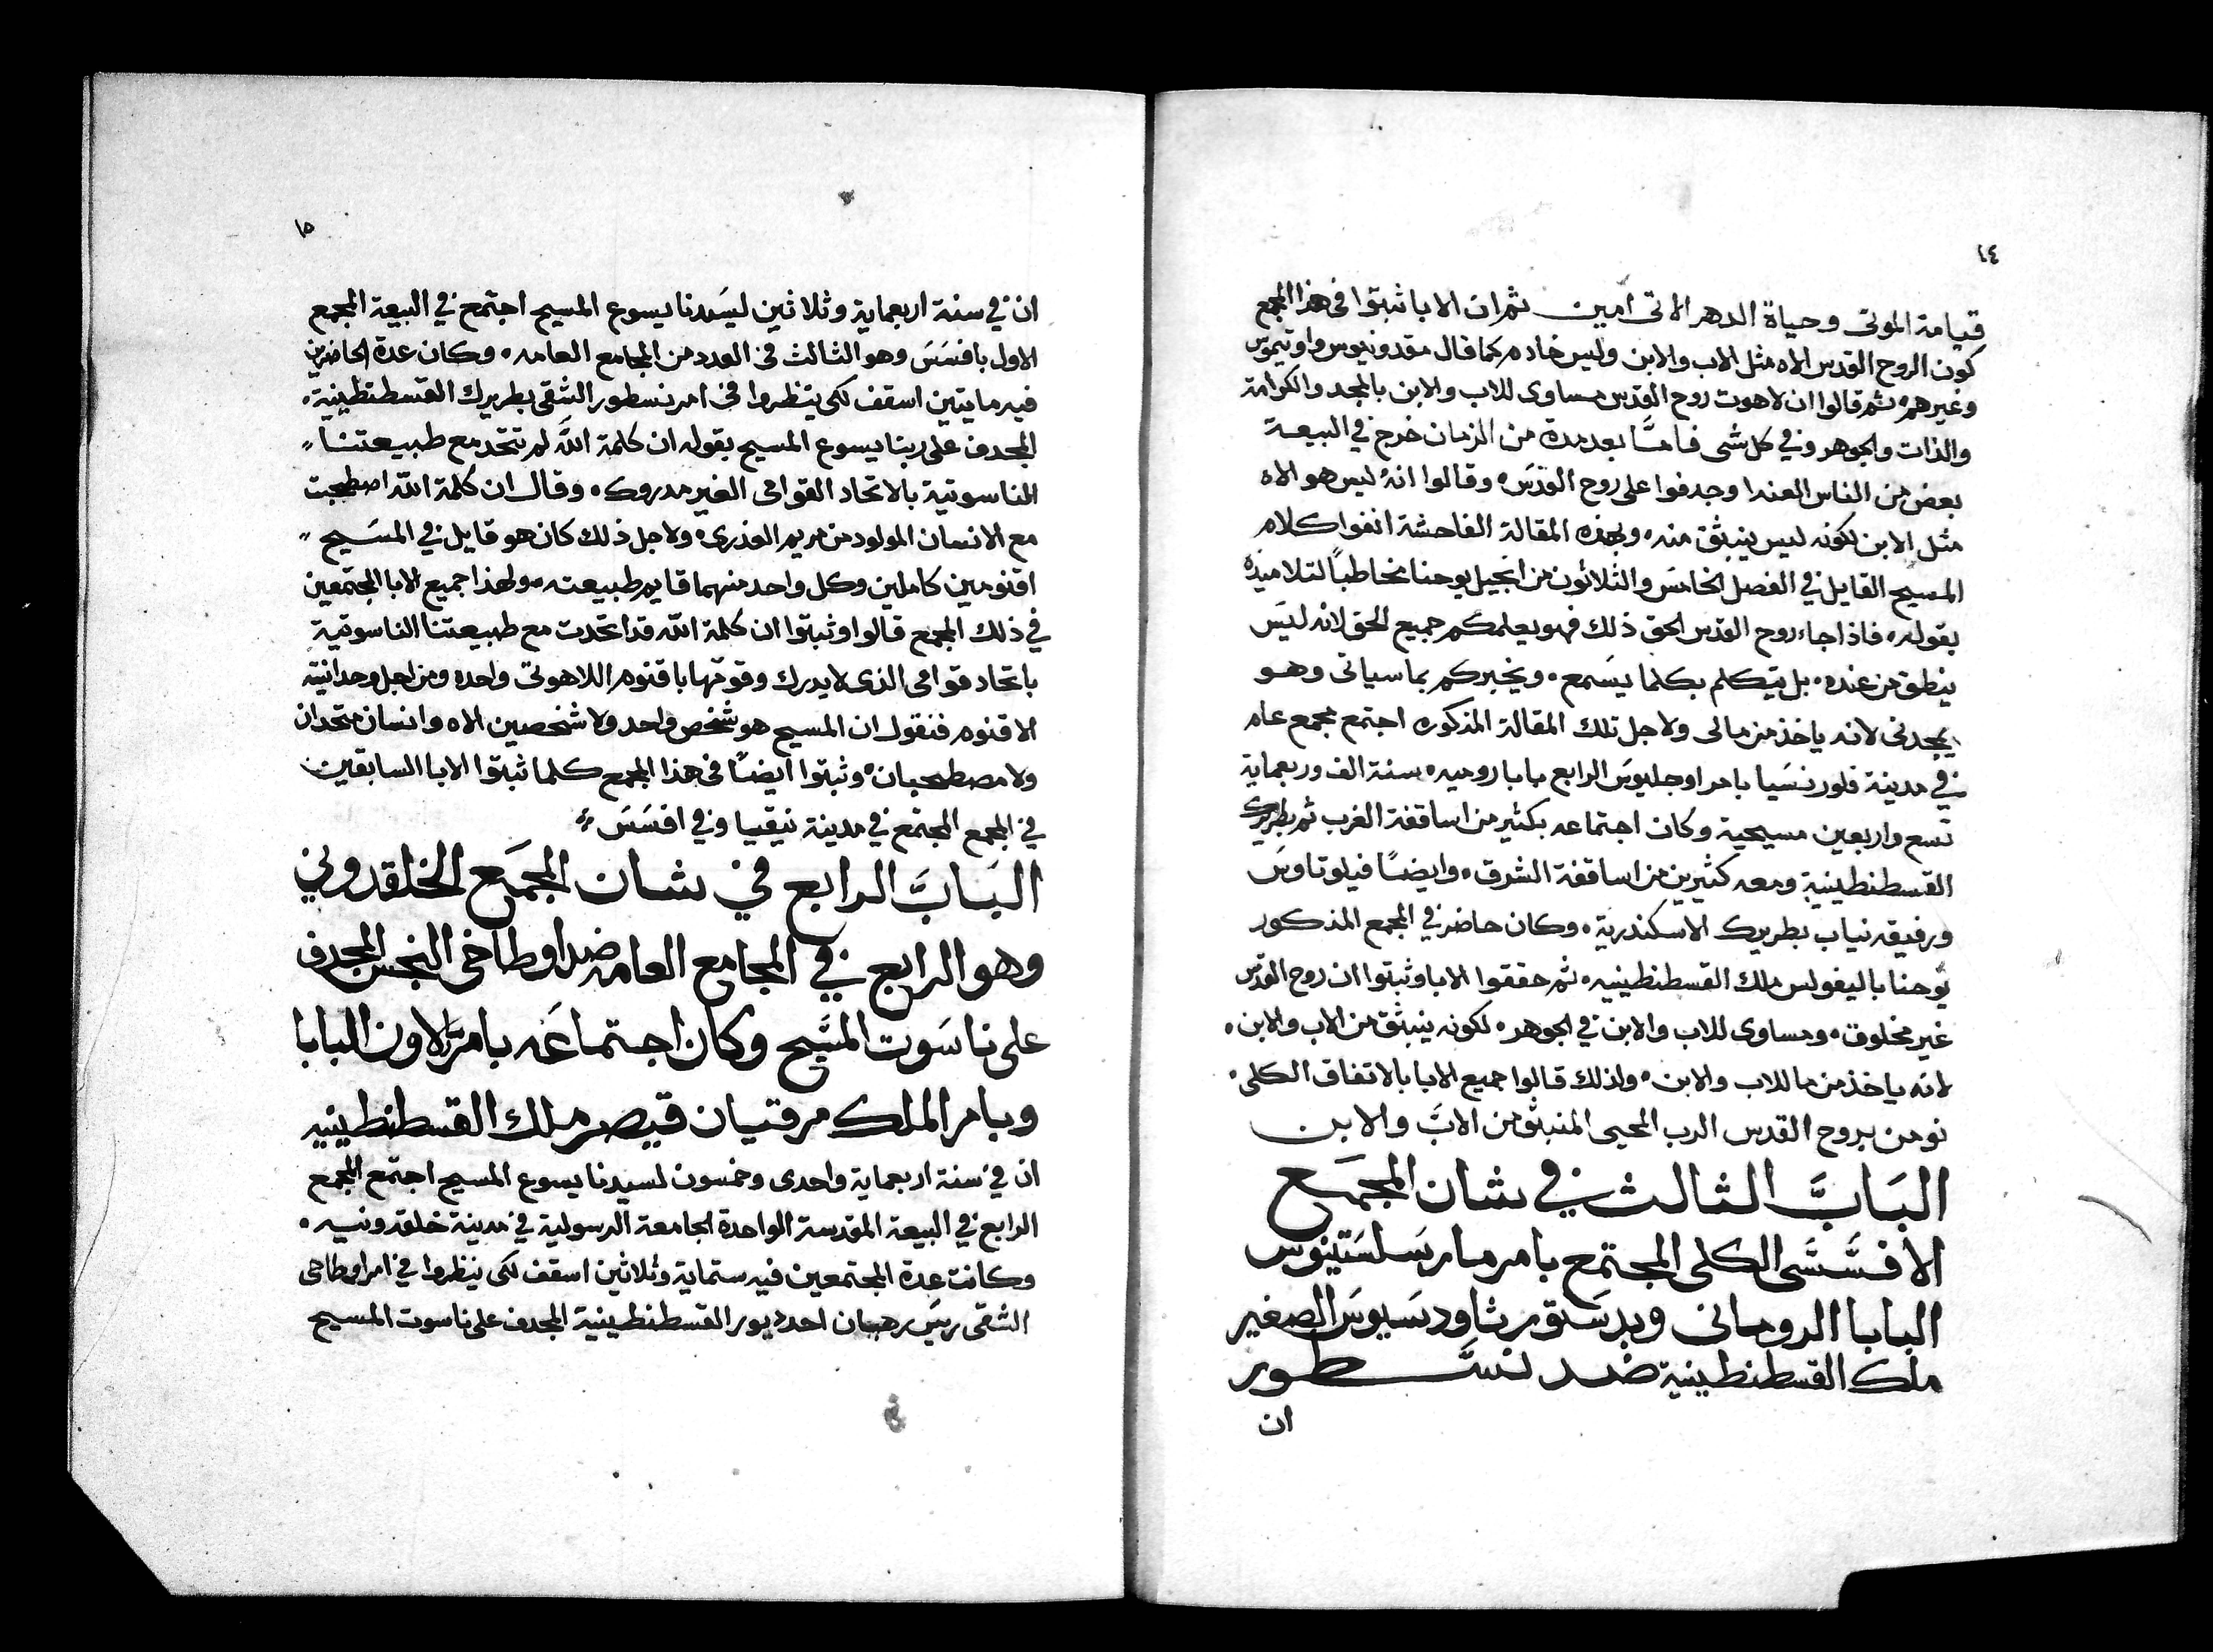 ١٤
قيامة الموتى وحياة الدهر الاتى امين ثم ان الابا ثبتوا فى هذا المجمع
كون الروح القدس الاه مثل الاب والابن وليس خادم كما قال مقدونيوس واوتيموس
وغيرهم ثم قالوا ان لاهوت روح القدس مساوى للاب والابن بالمجد والكرامة
والذات والجوهر وفي كل شى فامـا بعد مدة من الزمان خرج في البيعة
بعض من الناس العندا وجدفوا على روح القدس وقالوا انه ليس هو الاه
مثل الابن لكونه ليس ينبثق منه وبهذه المقالة الفاحشة انفوا كلام
المسيح القايل في الفصل الخامس والثلاثون من انجيل يوحنا مخاطباً لتلاميذه
بقوله فاذا جاء روح القدس الحق ذلك فهو يعلمكم جميع الحق لانه ليس
ينطق من عنده بل يتكلم بكلما يسمع ويخبركم بما سياتى وهو
يمجدنى لانه ياخذ من مالى ولاجل تلك المقالة المذكوره اجتمع مجمع عام
في مدينة فلورنسيا بامر اوجليوس الرابع بابا روميه سنة الف وربعماية
تسع واربعين مسيحية وكان اجتماعه بكثير من اساقفة الغرب ثم بطريرك
القسطنطينية ومعه كثيرين من اساقفة الشرق وايضاً فيلوتاوس
ورفيقه نياب بطريرك الاسكندرية وكان حاضر في المجمع المذكور
يوحنا باليغولس ملك القسطنطينيه ثم حققوا الابا وثبتوا ان روح القدس
غير مخلوق ومساوى للاب والابن في الجوهر لكونه ينبثق من الاب والابن
لانه ياخذ من ما للاب والابن ولذلك قالوا جميع الابا بالاتفاق الكلى
نومن بروح القدس الرب المحيى المنبثق من الاب والابن
الباب الثالث في شان المجمع
الافسسى الكلى المجتمع بامر مار سلستينوس
البابا الرومانى وبدستور ثاودسيوس الصغير
ملك القسطنطينية ضد نسطور
ان
١٥
ان في سنة اربعماية وثلاثين ليسدنا يسوع المسيح اجتمع في البيعة المجمع
الاول بافسس وهو الثالث في العدد من المجامع العامه وكان عدة الحاضرين
فيه مايتين اسقف لكى ينظروا في امر نسطور الشقى بطريرك القسطنطينية
المجدف على ربنا يسوع المسيح بقوله ان كلمة الله لم تتحد مع طبيعتنا
الناسوتية بالاتحاد القوامى الغير مدروك وقال ان كلمة الله اصطحبت
مع الانسان المولود من مريم العذرى ولاجل ذلك كان هو قايل في المسيح
اقنومين كاملين وكل واحد منهما قايم طبيعته ولهذا جميع الابا المجتمعين
في ذلك المجمع قالوا وثبتوا ان كلمة الله قد اتحدت مع طبيعتنا الناسوتية
باتحاد قوامى الذى لا يدرك وقومتها باقنوم اللاهوتى واحده ومن اجل وحدانية
الاقنوم فنقول ان المسيح هو شخص واحد ولا شخصين الاه وانسان متحدان
ولا مصطحبان وثبتوا ايضاً في هذا المجمع كلما ثبتوا الابا السابقين
في المجمع المجتمع في مدينة نيقيا وفي افسس
الباب الرابع في شان المجمع الخلقدوني
وهو الرابع في المجامع العامه ضد اوطاخى النجس المجدف
على ناسوت المسيح وكان اجتماعه بامر لاون البابا
وبامر الملك مرقتيان قيصر ملك القسطنطينيه
ان في سنة اربعماية واحدى وخمسون لسيدنا يسوع المسيح اجتمع المجمع
الرابع في البيعة المقدسة الواحدة الجامعة الرسولية في مدينة خلقدونيه
وكانت عدة المجتمعين فيه ستماية وثلاثين اسقف لكى ينظروا في امر اوطاخى
الشقى ريس رهبان احد ديور القسطنطينية المجدف على ناسوت المسيح